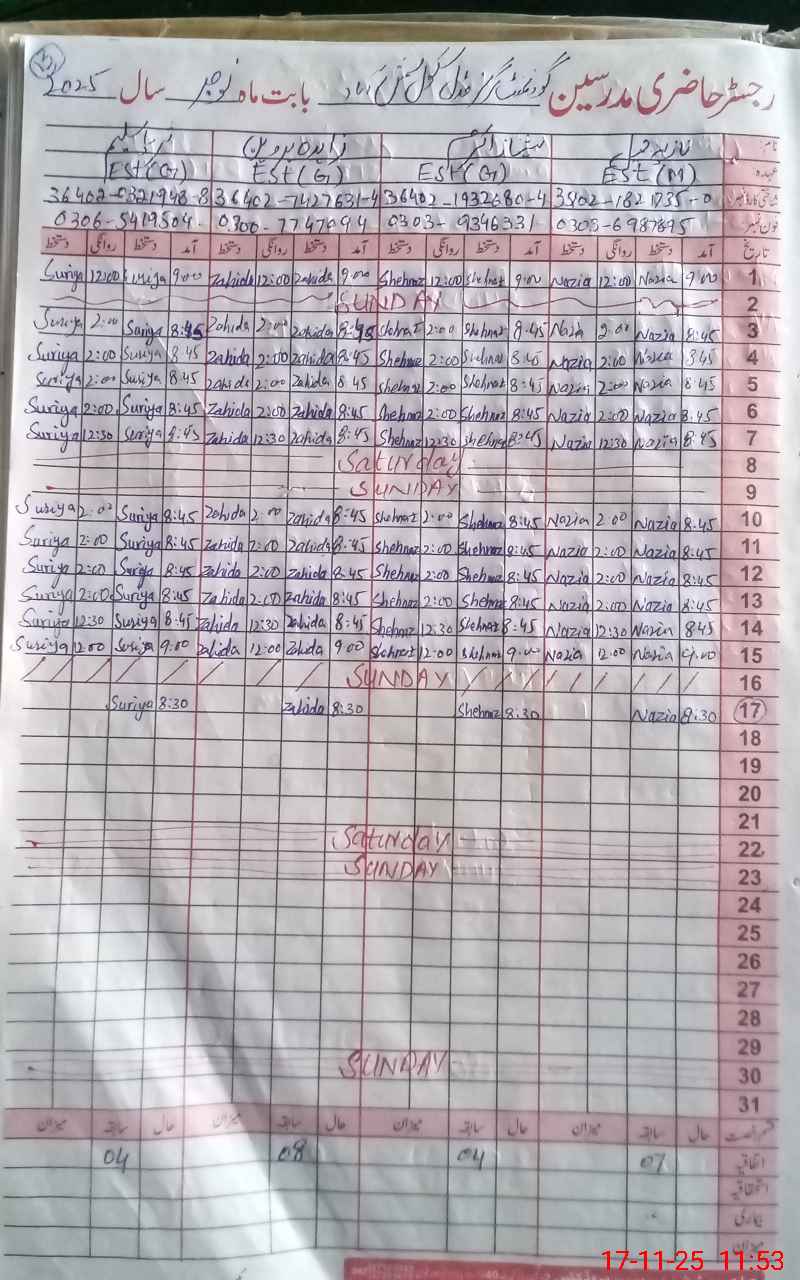 رجسٹر حاضری مدرسین گورنمنٹ گرلز مڈل سکول بابت ماہ نومبر سال 2025
نام: نازیہ شہناز اختر زاہدہ پروین ثریا سلیم
عہدہ Est (M) Est (G) Est (G) Est (G)
36402-0321948-8 36402-7427631-4 36402-1932680-4
فون نمبر 0306-5419504 0300-7747094 0303-9346331 0303-6987895
تاریخ آمد دستخط روانگی دستخط آمد دستخط روانگی دستخط آمد دستخط روانگی دستخط آمد دستخط روانگی دستخط
Suriya 12:00 Suriya 9:00 Zahida 12:00 Zahida 9:00 Shehnaz 12:00 Shehnaz 9:00 Nazia 12:00 Nazia 9:00 1
SUNDAY 2
Suriya 2:00 Suriya 8:45 Zahida 2:00 Zahida 8:45 Shehnaz 2:00 Shehnaz 8:45 Nazia 2:00 Nazia 8:45 3
Suriya 2:00 Suriya 8:45 Zahida 2:00 Zahida 8:45 Shehnaz 2:00 Shehnaz 8:45 Nazia 2:00 Nazia 8:45 4
Suriya 2:00 Suriya 8:45 Zahida 2:00 Zahida 8:45 Shehnaz 2:00 Shehnaz 8:45 Nazia 2:00 Nazia 8:45 5
Suriya 2:00 Suriya 8:45 Zahida 2:00 Zahida 8:45 Shehnaz 2:00 Shehnaz 8:45 Nazia 2:00 Nazia 8:45 6
Suriya 12:30 Suriya 8:45 Zahida 12:30 Zahida 8:45 Shehnaz 12:30 Shehnaz 8:45 Nazia 12:30 Nazia 8:45 7
Saturday 8
SUNDAY 9
Suriya 2:00 Suriya 8:45 Zahida 2:00 Zahida 8:45 Shehnaz 2:00 Shehnaz 8:45 Nazia 2:00 Nazia 8:45 10
Suriya 2:00 Suriya 8:45 Zahida 2:00 Zahida 8:45 Shehnaz 2:00 Shehnaz 8:45 Nazia 2:00 Nazia 8:45 11
Suriya 2:00 Suriya 8:45 Zahida 2:00 Zahida 8:45 Shehnaz 2:00 Shehnaz 8:45 Nazia 2:00 Nazia 8:45 12
Suriya 2:00 Suriya 8:45 Zahida 2:00 Zahida 8:45 Shehnaz 2:00 Shehnaz 8:45 Nazia 2:00 Nazia 8:45 13
Suriya 12:30 Suriya 8:45 Zahida 12:30 Zahida 8:45 Shehnaz 12:30 Shehnaz 8:45 Nazia 12:30 Nazia 8:45 14
Suriya 12:00 Suriya 9:00 Zahida 12:00 Zahida 9:00 Shehnaz 12:00 Shehnaz 9:00 Nazia 12:00 Nazia 9:00 15
SUNDAY 16
Suriya 8:30 Zahida 8:30 Shehnaz 8:30 Nazia 8:30 17
18
19
20
21
Saturday 22
SUNDAY 23
24
25
26
27
28
29
SUNDAY 30
31
قسم رخصت حال سابقہ میزان حال سابقہ میزان حال سابقہ میزان حال سابقہ میزان
اتفاقیہ 07 04 08 04
استحقاقیہ
بیماری
میزان
17-11-25 11:53